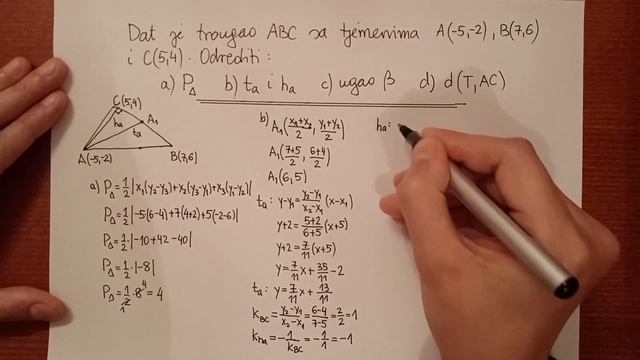 Dat je trougao ABC sa tjemenima A(-5,-2), B(7,6)
i C(5,4). Odrediti:
a) P△ b) ta i ha c) ugao β d) d(T,AC)
C(5,4)
ha
A1
ta
A(-5,-2)
B(7,6)
a) P△ = 1/2 |x1(y2-y3)+x2(y3-y1)+x3(y1-y2)|
P△ = 1/2 |-5(6-4)+7(4+2)+5(-2-6)|
P△ = 1/2 · |-10+42-40|
P△ = 1/2 · |-8|
P△ = 1/2 · 8 = 4
1 4
b) A1((x1+x2)/2, (y1+y2)/2)
A1((7+5)/2, (6+4)/2)
A1(6,5)
ta: y-y1 = (y2-y1)/(x2-x1) (x-x1)
y+2 = (5+2)/(6+5) (x+5)
y+2 = 7/11 (x+5)
y = 7/11 x + 35/11 - 2
ta: y = 7/11 x + 13/11
kBC = (y2-y1)/(x2-x1) = (6-4)/(7-5) = 2/2 = 1
kha = -1/kBC = -1/1 = -1
ha: